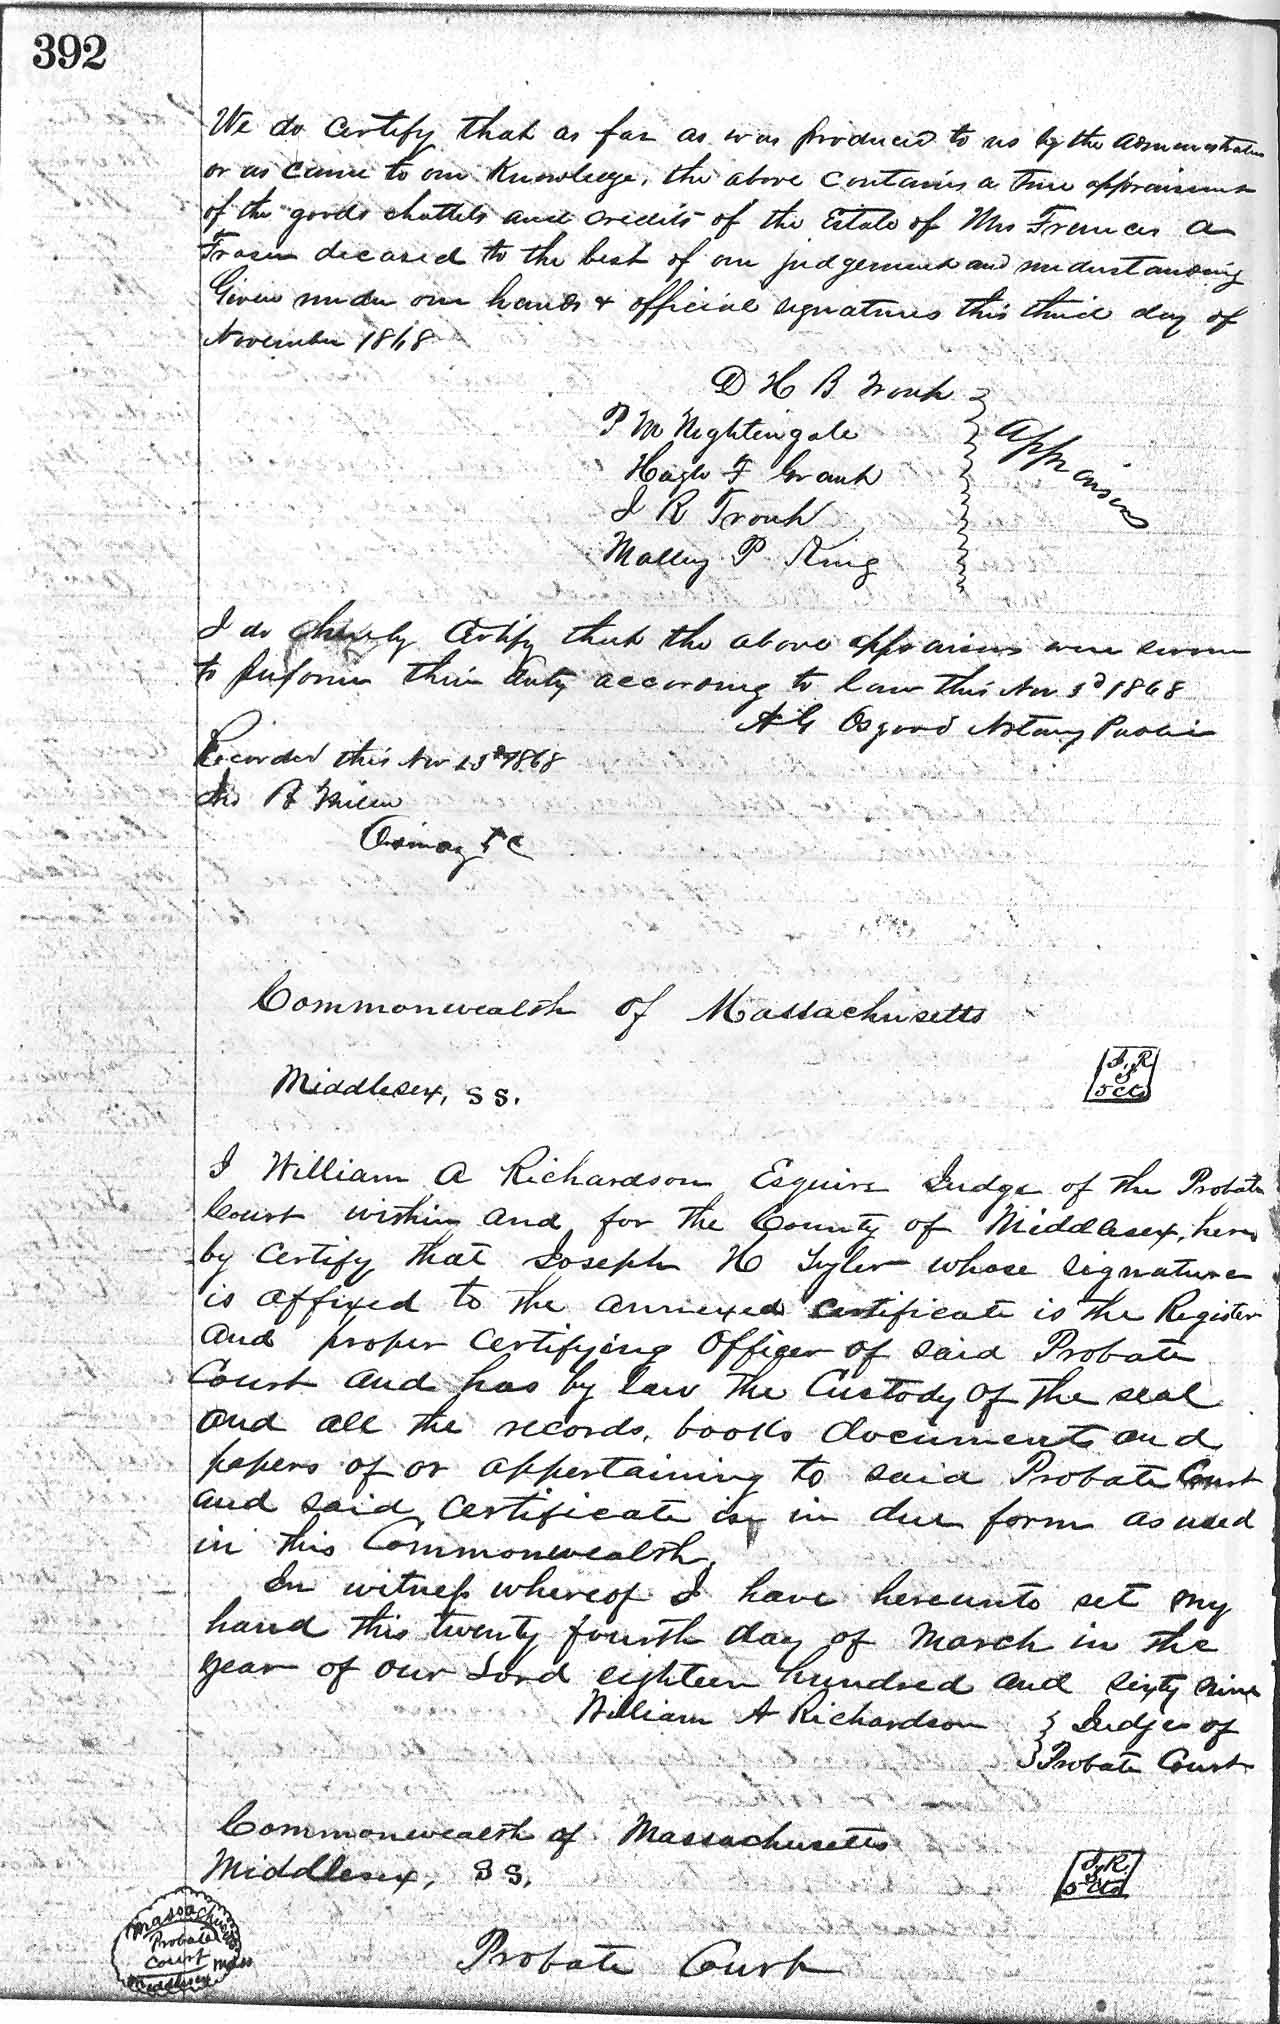 392
We do certify that as far as was produced to us by the Administrator
or as came to our knowledge, the above contains a true appraisement
of the goods chattels and credits of the Estate of Mrs Frances A
Fraser deceased to the best of our judgement and understanding
Given under our hands & official signatures this third day of
November 1868
D H B Troup
P M Nightingale
Hugh F Grant
J R Troup
Mallery P King
Appraisers
I do hereby Certify that the above appraisers were sworn
to perform their duty according to law this Nov 3d 1868
A G Osgood Notary Public
Recorded this Nov 23d 1868
Ordinary
Commonwealth of Massachusetts
Middlesex, SS.
I. R.
S
5 cts
I William A Richardson Esquire Judge of the Probate
Court within and for the County of Middlesex, here
by certify that Joseph H Tyler whose signature
is affixed to the annexed certificate is the Register
and proper certifying Officer of said Probate
Court and has by law the Custody of the seal
and all the records, books documents and
papers of or appertaining to said Probate Court
and said certificate is in due form as used
in this Commonwealth.
In witness whereof I have hereunto set my
hand this twenty fourth day of March in the
year of our Lord eighteen hundred and sixty nine
William A Richardson } Judge of
} Probate Court
Commonwealth of Massachusetts
Middlesex, SS.
I. R.
S
5 cts
Massachusetts
Probate
Court
Middlesex
Mass
Probate Court